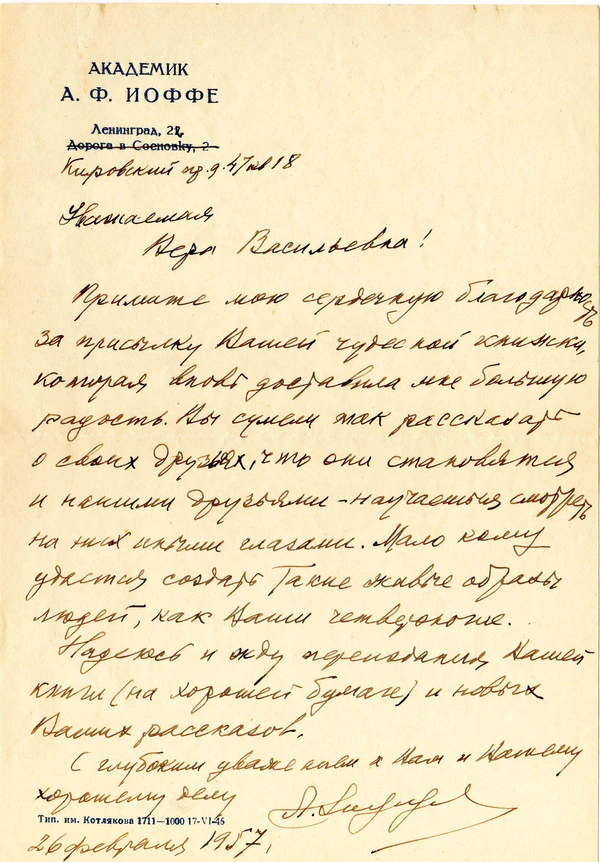 АКАДЕМИК
А. Ф. ИОФФЕ
Ленинград, 22
Дорога в Сосновку, 2
Кировский пр. д. 47 кв 18
Уважаемая
Вера Васильевна!
Примите мою сердечную благодарность
за присылку Вашей чудесной книжки,
которая вновь доставила мне большую
радость. Вы сумели так рассказать
о своих друзьях, что они становятся
и нашими друзьями – научаешься смотреть
на них иными глазами. Мало кому
удастся создать такие живые образы
людей, как Ваши четвероногие.
Надеюсь и жду переиздания Вашей
книги (на хорошей бумаге) и новых
Ваших рассказов.
С глубоким уважением к Вам и Вашему
хорошему делу
А. Иоффе
Тип. им. Котлякова 1711—1000 17-VI-45
26 февраля 1957,